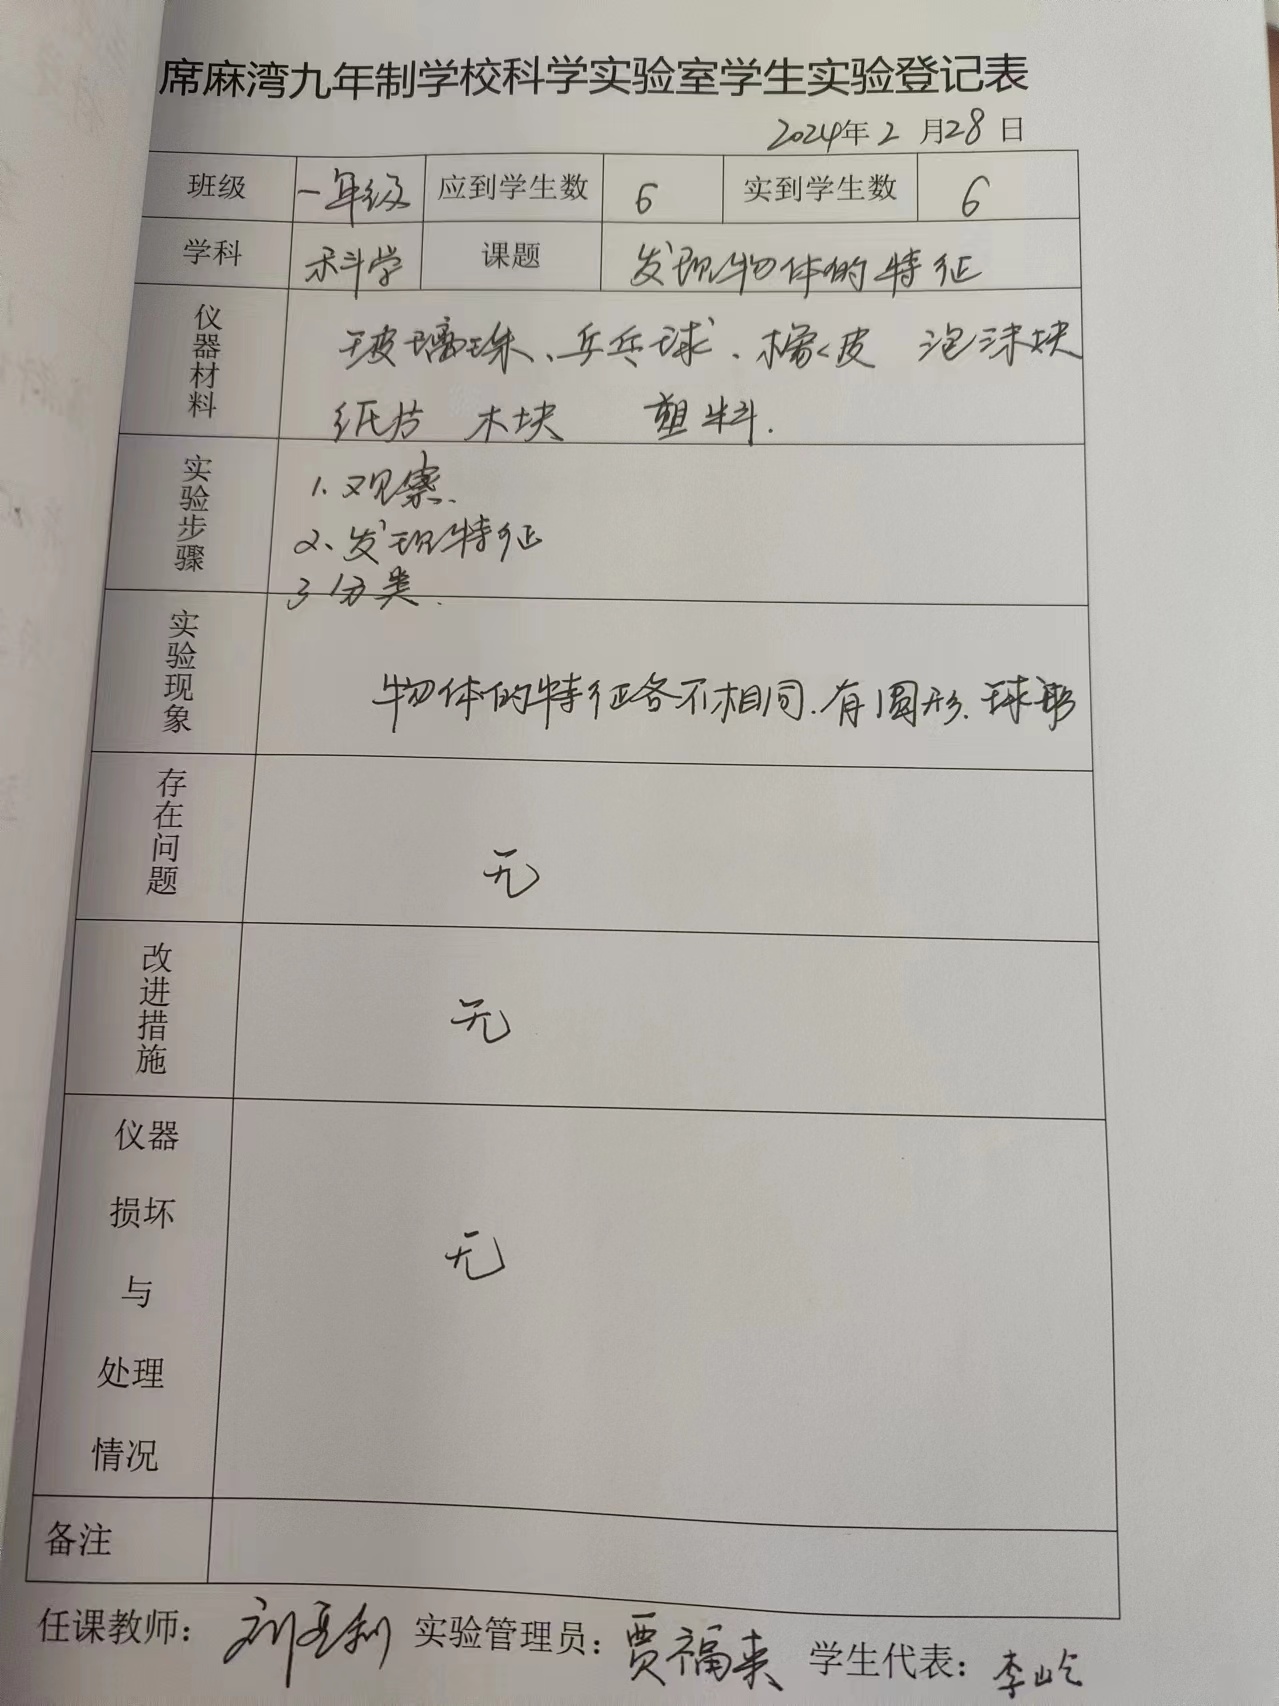 席麻湾九年制学校科学实验室学生实验登记表
2024年2月28日
班级 一年级 应到学生数 6 实到学生数 6
学科 科学 课题 发现物体的特征
仪器材料 玻璃珠、乒乓球、橡皮 泡沫块
纸片 木块 塑料.
实验步骤 1.观察.
2、发现特征
3 分类.
实验现象 物体的特征各不相同.有圆形.球形
存在问题 无
改进措施 无
仪器
损坏
与
处理
情况
无
备注
任课教师: 刘利 实验管理员: 贾福来 学生代表: 李屹